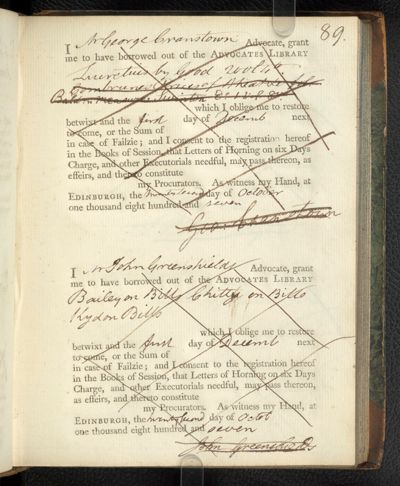 89.
I Mr George Cranstown Advocate, grant
me to have borrowed out of the ADVOCATES LIBRARY
Lucretius by Good 2 vols 4to
which I oblige me to restore
betwixt and the first day of Decemb next
to come, or the Sum of
in case of Failzie; and I consent to the registration hereof
in the Books of Session, that Letters of Horning on six Days
Charge, and other Executorials needful, may pass thereon, as
effeirs, and thereto constitute
my Procurators. As witness my Hand, at
EDINBURGH, the day of October
one thousand eight hundred and seven
Geo: Cranstown
I Mr John Greenshields Advocate, grant
me to have borrowed out of the ADVOCATES LIBRARY
Bailey on Bills Chitty on Bills
Kydon Bills
which I oblige me to restore
betwixt and the first day of Decemb next
to come, or the Sum of
in case of Failzie; and I consent to the registration hereof
in the Books of Session, that Letters of Horning on six Days
Charge, and other Executorials needful, may pass thereon,
as effeirs, and thereto constitute
my Procurators. As witness my Hand, at
EDINBURGH, the twenty second day of Octob
one thousand eight hundred and seven
John Greenshields